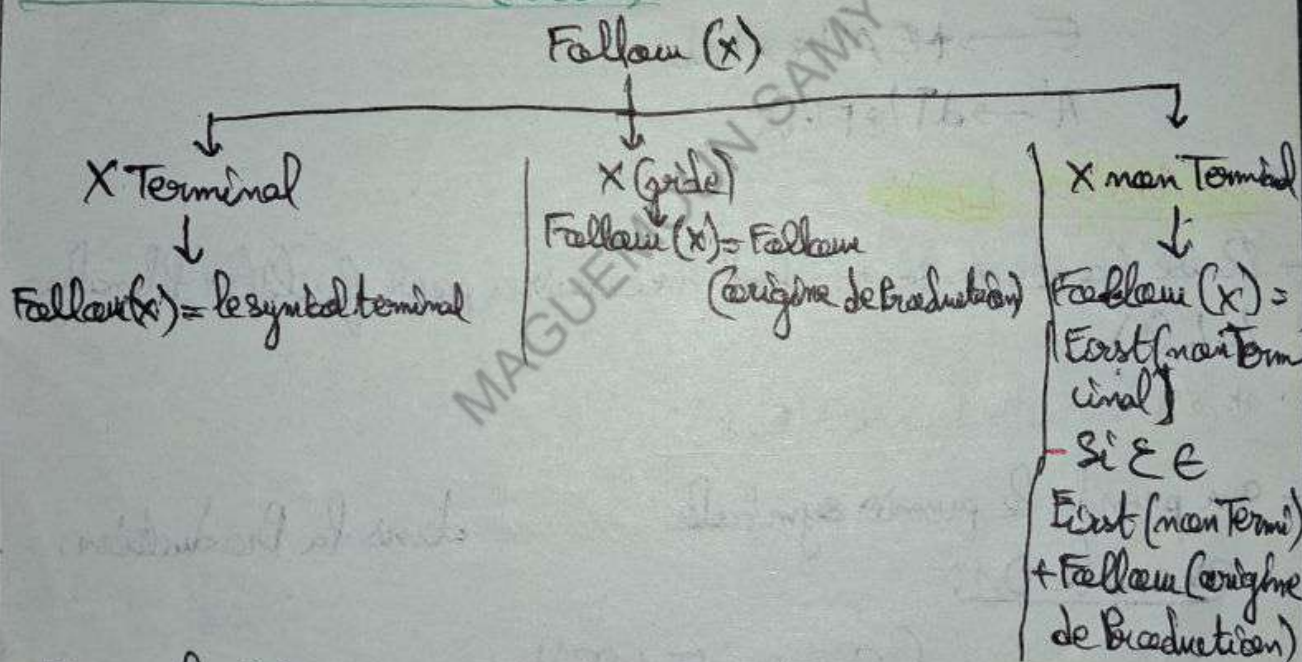 Follow (x)
X Terminal
Follow(x) = le symbol terminal
X (vide)
Follow (x) = Follow
(origine de Production)
X non Terminal
Follow (x) =
First (non Term
inal)
- Si ε ∈
First (non Termi)
+ Follow (origine
de Production)
MAGUEMOUN SAMY